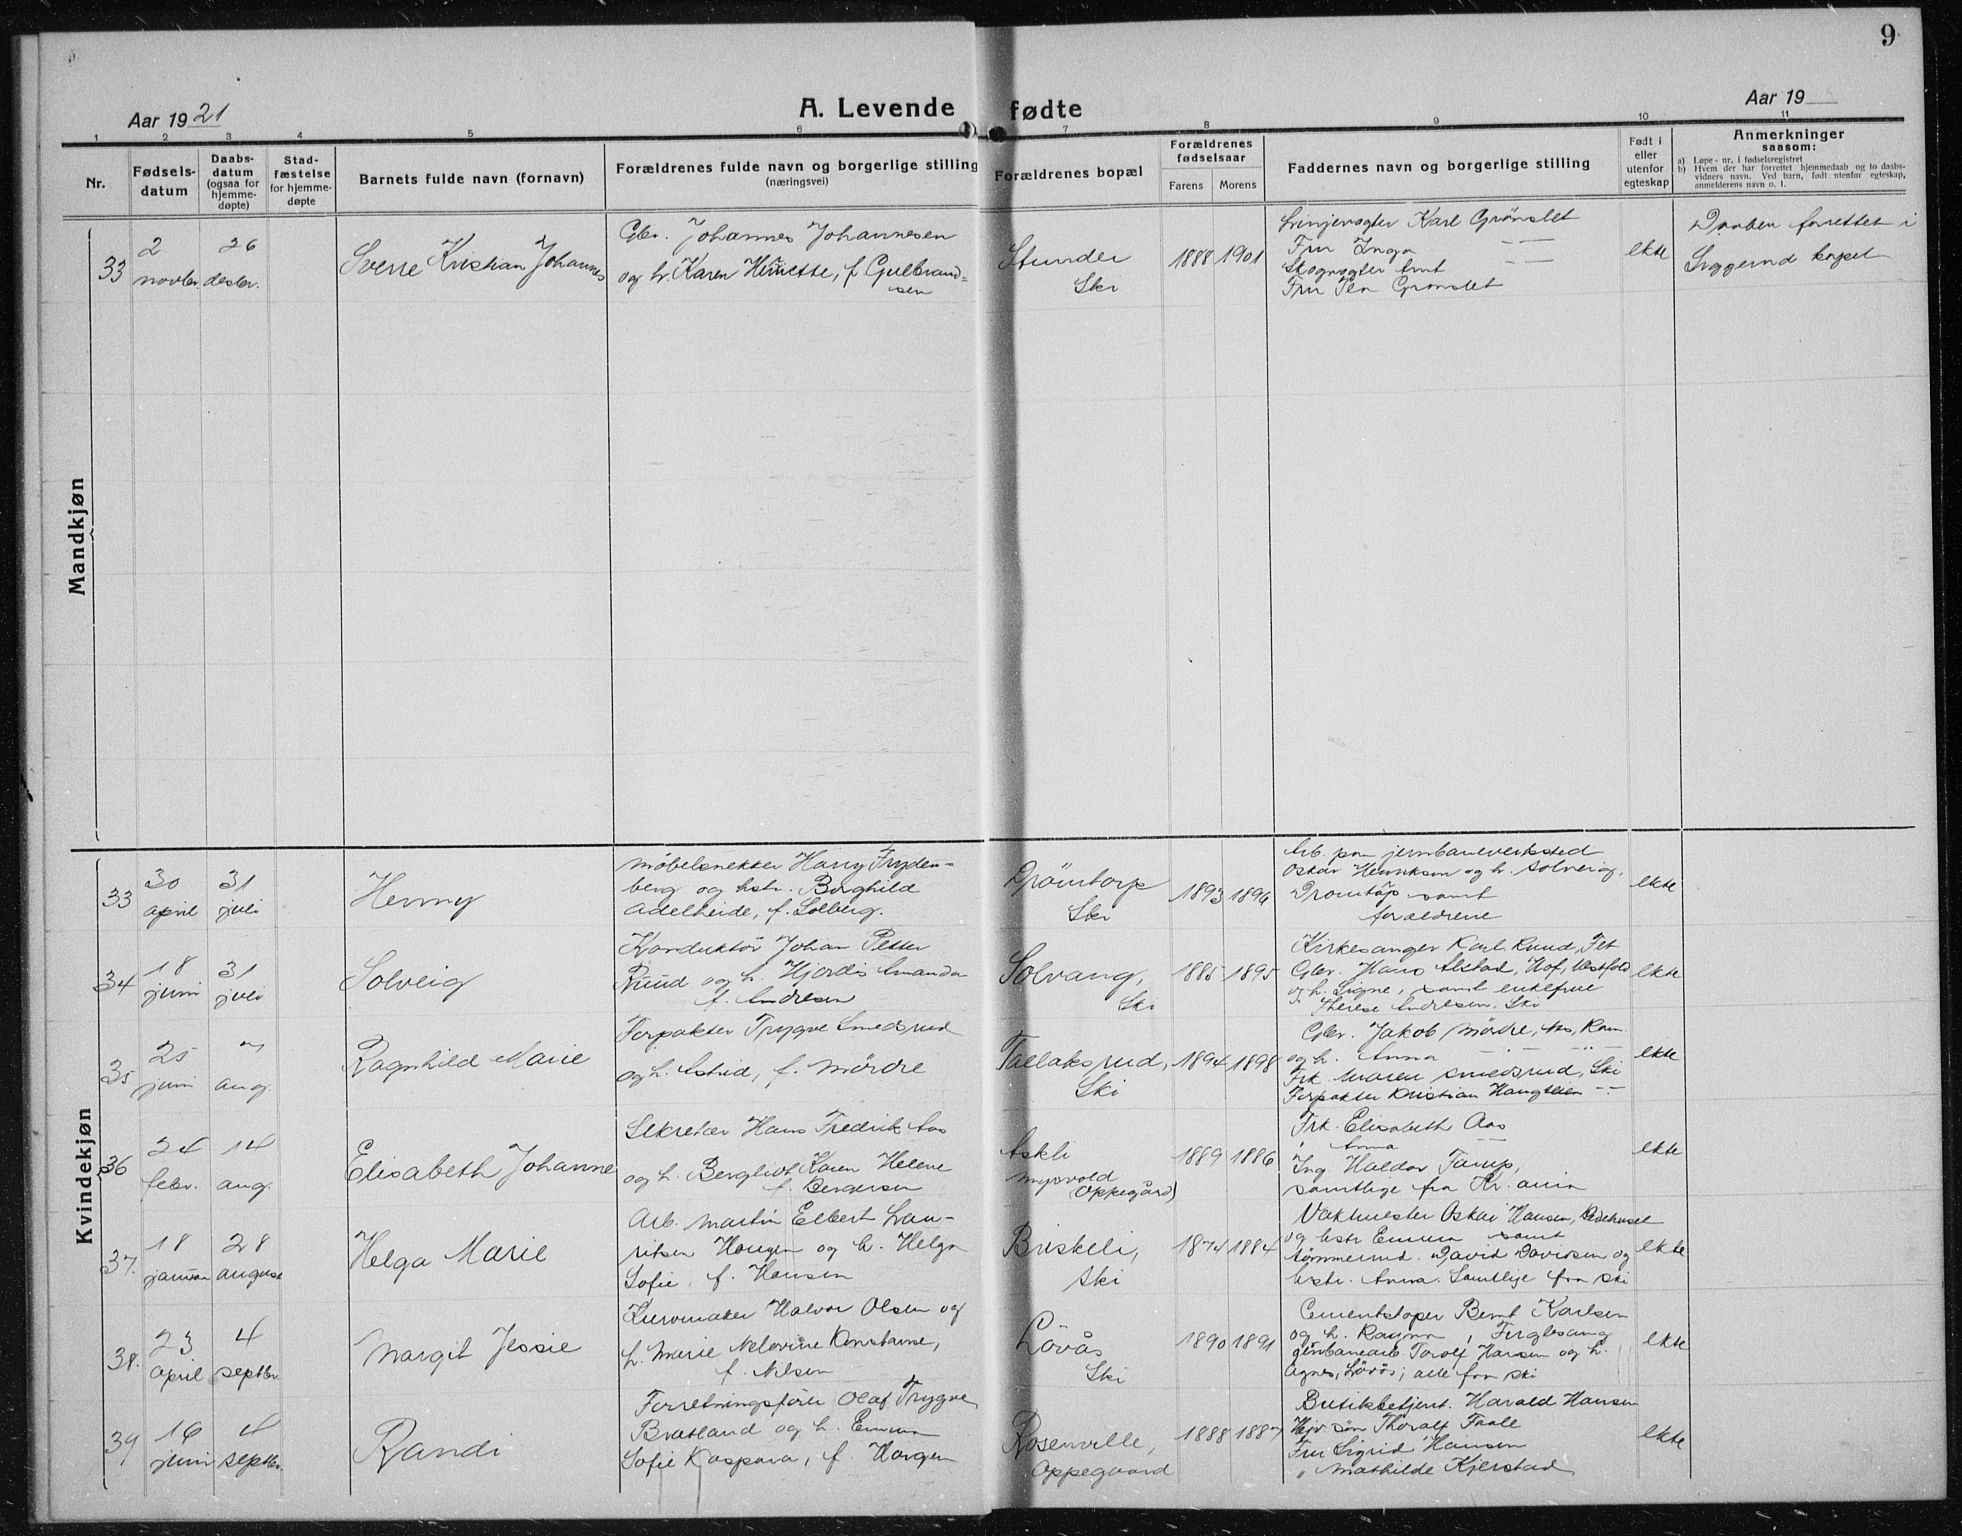 9
Aar 1921
A. Levende fødte
Aar 19
1 2 3 4 5 6 7 8 9 10 11
Nr.
Fødsels-
datum
Daabs-
datum
(ogsaa for
hjemme-
døpte)
Stad-
fæstelse
for hjemme-
døpte
Barnets fulde navn (fornavn)
Forældrenes fulde navn og borgerlige stilling
(næringsvei)
Forældrenes bopæl
Forældrenes
fødselsaar
Farens Morens
Faddernes navn og borgerlige stilling
Født i
eller
utenfor
egteskap
Anmerkninger
saasom:
a) Løpe-nr. i fødselsregistret
b) Hvem der har forrettet hjemmedaab og to daabs-
vidners navn. Ved barn, født utenfor egteskap,
anmelderens navn o. l.
Mandkjøn
33
2
novbr.
26
desbr.
Sverre Kristian Johannes
Gbr. Johannes Johannesen
og h. Karen Henriette, f. Gulbrand-
sen
Stunder
Ski
1888 1901
Linjevogter Karl Grønslet
Fru Inga — —
Skogvogter Arnt — —
Fru Tea Grønslet
ekte
Daaben forrettet i
Siggerud kapel
Kvindekjøn
33
30
april
31
juli
Henny
Møbelsnekker Harry Fryden-
berg og hstr. Borghild
Adelheide, f. Solberg.
Drömtorp
Ski
1893 1896
Arb. paa jernbaneverksted
Oskar Henriksen og h. Solveig,
Drømtorp samt
forældrene
ekte
34
18
juni
31
juli
Solveig
Konduktör Johan Petter
Ruud og h. Hjørdis Amanda
f. Andresen
Solvang,
Ski
1885 1895
Kirkesanger Karl Ruud, Fet
Gbr. Hans Alstad, Hof, Vestfold
og h. Signe, samt enkefrue
Therese Andresen, Ski
ekte
35
25
juni
7
aug.
Ragnhild Marie
Forpakter Trygve Smedsrud
og h. Astrid, f. Mördre
Tallaksrud,
Ski
1894 1898
Gbr. Jakob Mördre, Nes, Rom.
og h. Anna — —
Frk. Maren Smedsrud, Ski
Forpakter Kristian Haugteien — —
ekte
36
24
febr.
14
aug.
Elisabeth Johanne
Sekretær Hans Fredrik Aas
og h. Bergliot Karen Helene
f. Bergersen
Askli
Myrvold
Oppegård)
1889 1886
Frk. Elisabeth Aas
" Anna —
Ing. Haldor Tarup,
samtlige fra Kr.ania
ekte
37.
18
januar
28
august
Helga Marie
Arb. Martin Elbert Lau-
ritsen Haugen og h. Helga
Sofie, f. Hansen
Briskeli,
Ski
1874 1884
Vaktmester Oskar Hansen, Bedehuset
og hstr Emma samt
tömmermd. David Davidsen og
hstr. Anna. Samtlige fra Ski
ekte
38.
23
april
4
septbr.
Margit Jessie
Kurvmaker Halvor Olsen og
h. Marie Nelovine Konstanse,
f. Nilsen
Lövås
Ski
1890 1891
Cementstøper Bernt Karlsen
og h. Ragna, Fuglesang
jernbanearb. Torolf Hansen og h.
Agnes, Lövås; alle fra Ski
ekte
39
16
juni
4
septbr.
Randi
Forretningsfører Olaf Trygve
Bratland og h. Emma
Sofie Kaspara, f. Horgen
Rosenville,
Oppegaard
1888 1887
Butikkbetjent. Harald Hansen
Hjv. søn Thoralf Faale
Fru Sigrid Hansen
" Mathilde Kjerstad
ekte